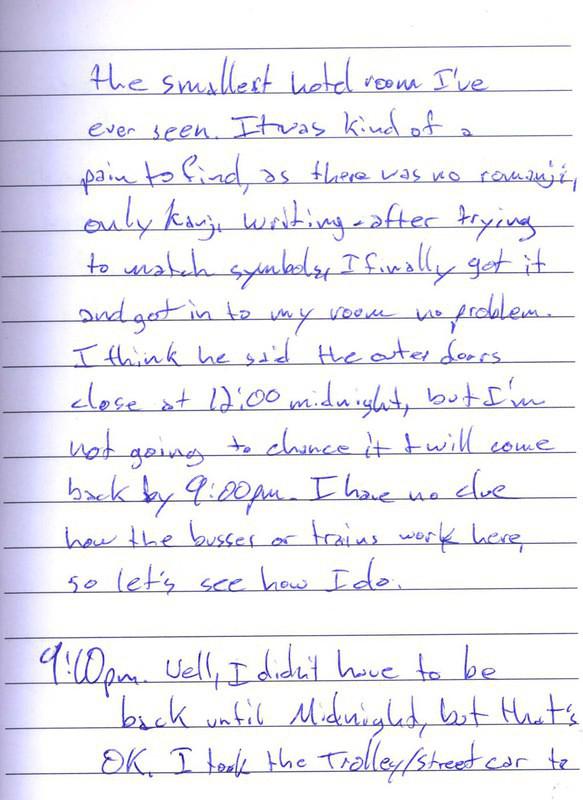 the smallest hotel room I've
ever seen. It was kind of a
pain to find, as there was no romanji,
only Kanji writing - after trying
to match symbols, I finally got it
and got in to my room no problem.
I think he said the outer doors
close at 12:00 midnight, but I'm
not going to chance it & will come
back by 9:00pm. I have no clue
how the busses or trains work here,
so let's see how I do.
9:10pm. Well, I didn't have to be
back until Midnight, but that's
OK. I took the Trolley/Street car to